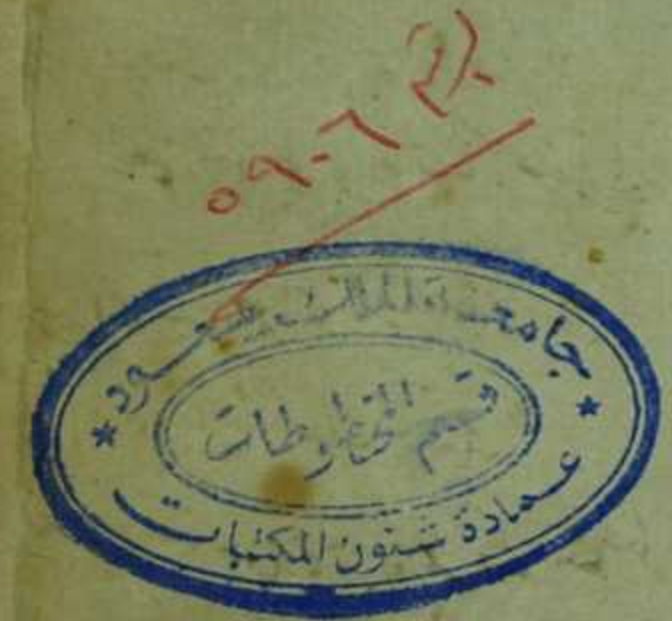 ٥٩٠٦
جامعة الملك سعود
قسم المخطوطات
عمادة شئون المكتبات